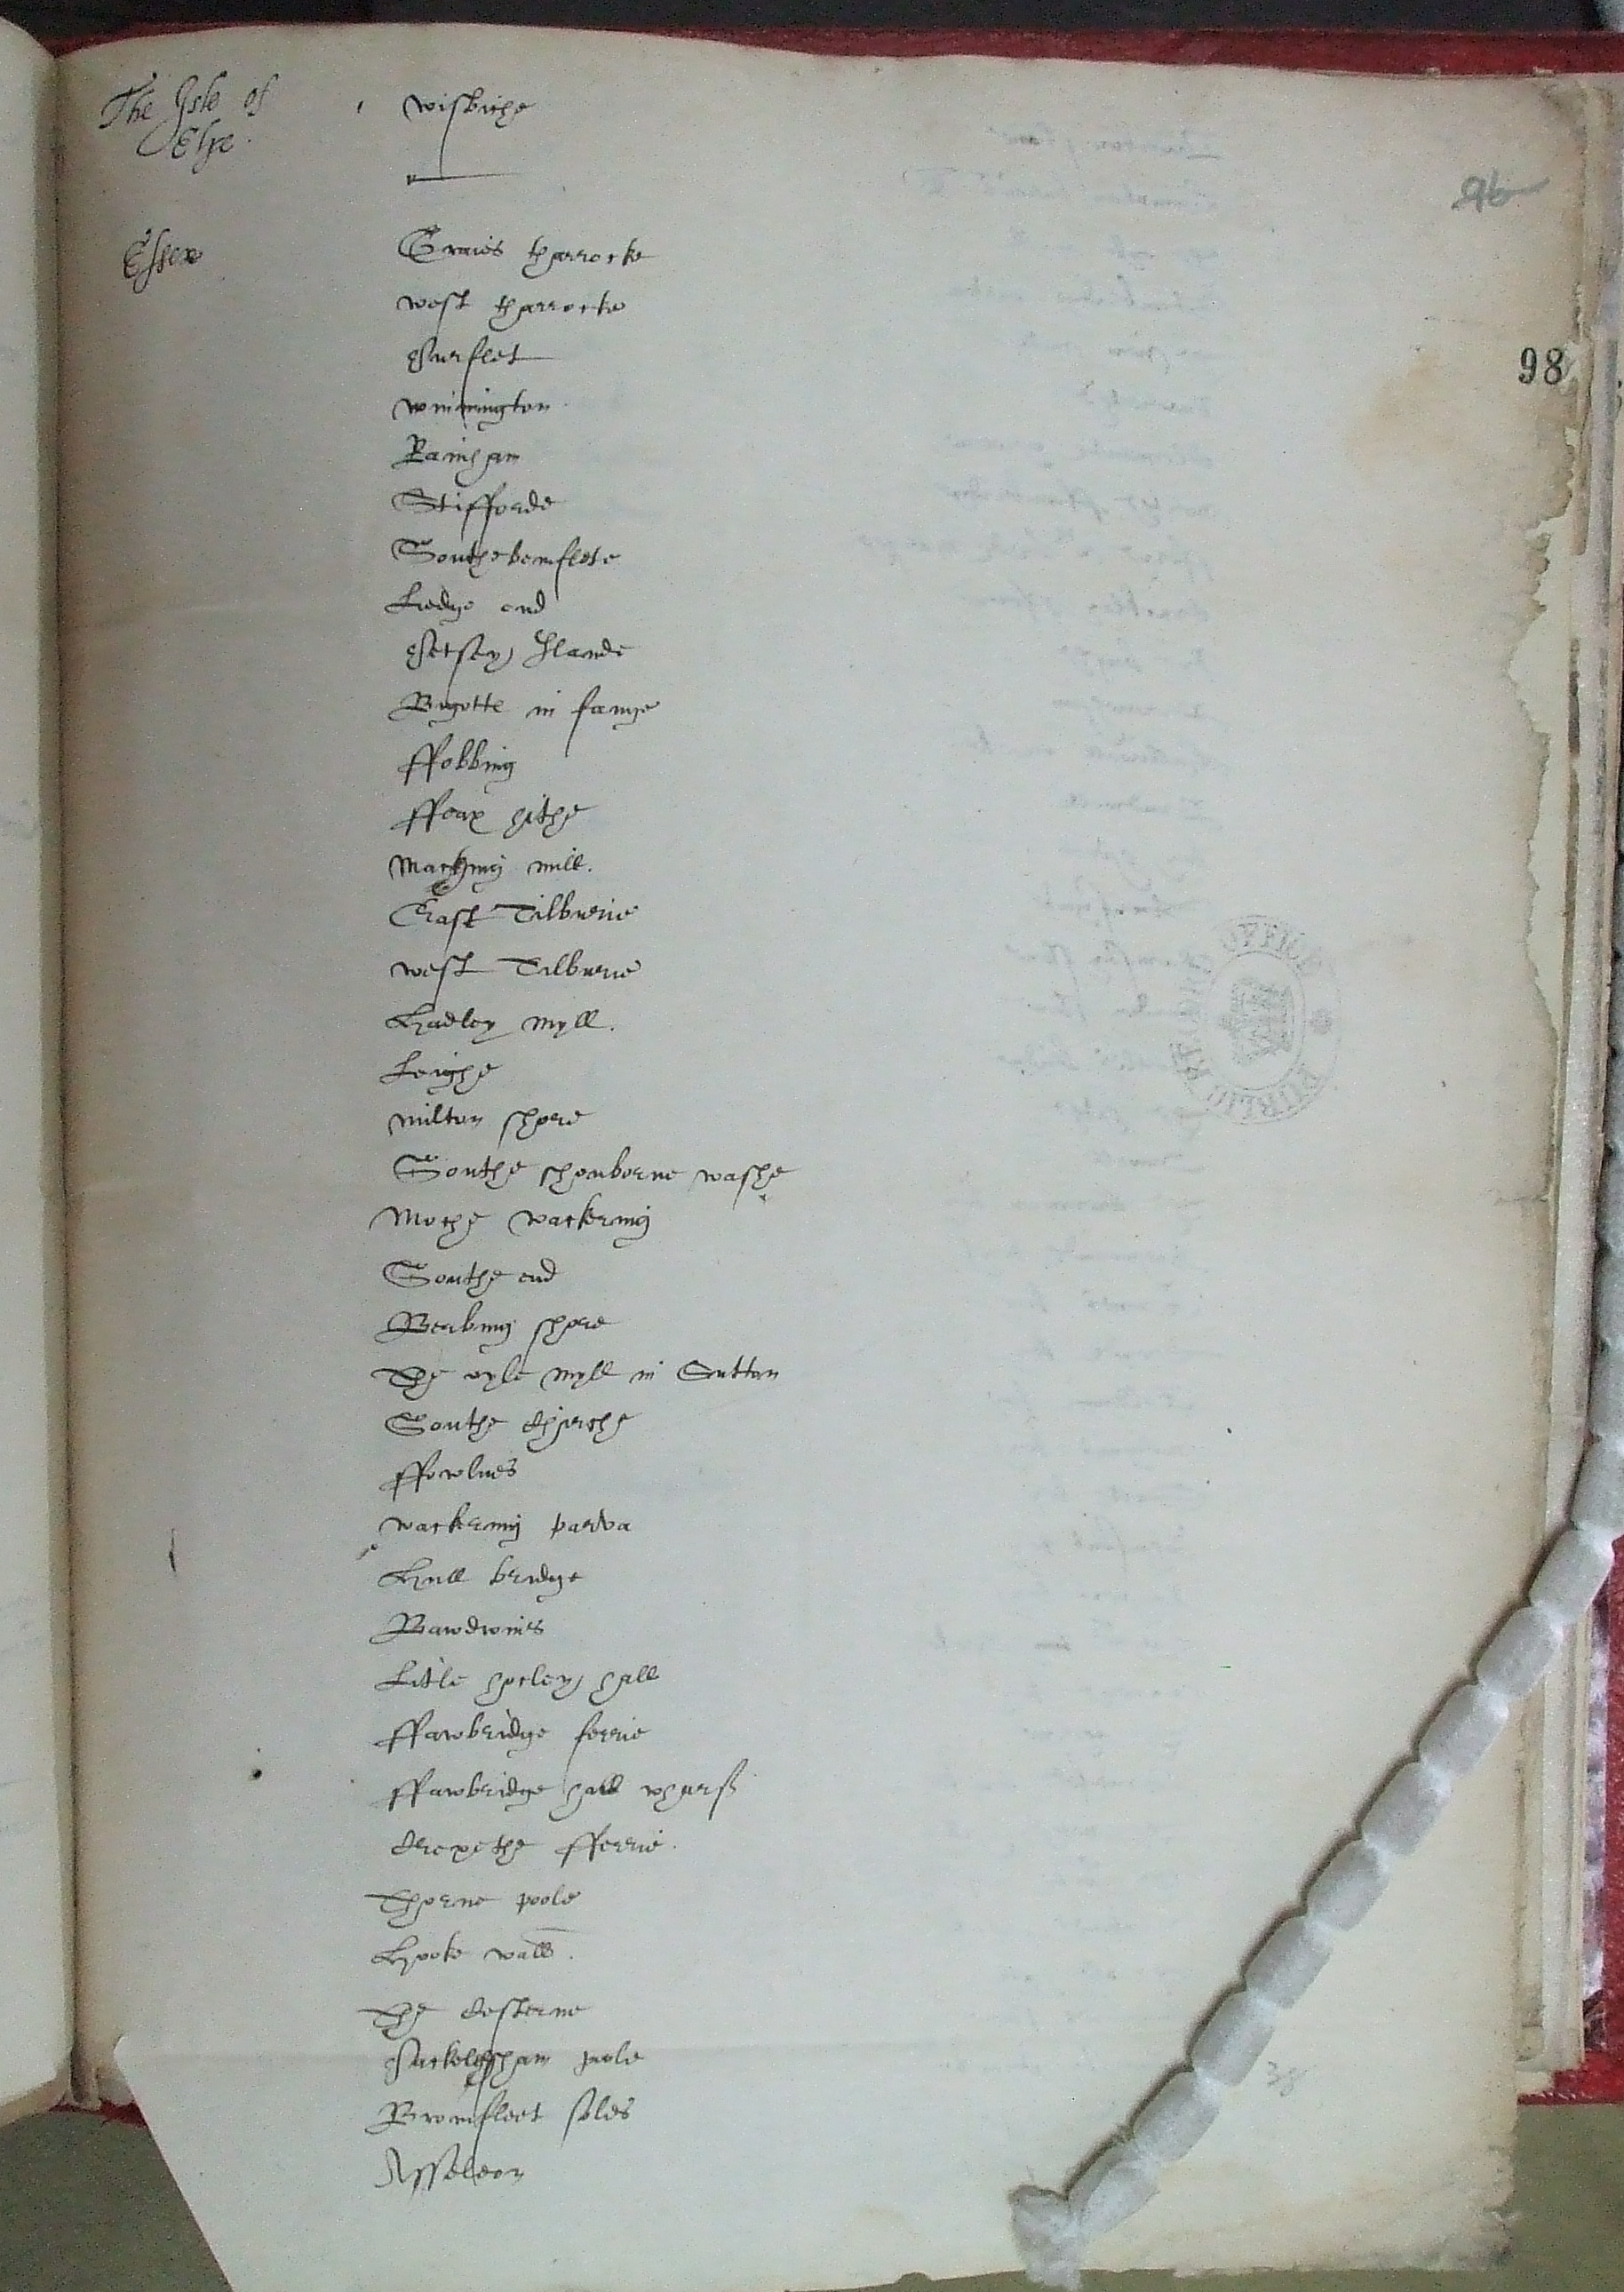 The Isle of
Elye.
wisbiche
96
Essex
Graies tharrocke
west tharrocke
98
Purflet
wninington
Rainham
Stifforde
Southebemflete
Ledge end
Petsey Ilande
Bigotte in fange
ffobbing
ffoax hithe
Matching mill.
East Tilburie
west Tilburie
Hadley myll.
Leighe
milton shore
Southe shouborne washe
Moche wackering
Southe end
Berbing shore
The oyle myll in Sutton
Southe Chirche
ffowlnes
wackering parva
Hull bridge
Bawdwins
Litle hocley hall
ffawbridge ferrie
ffawbridge hall wharf
Crexethe fferrie.
Thorne poole
Hooke wall.
The Cesterne
Packelsham poole
Bromfleet soles
Asseldon
38
PUBLIC RECORD OFFICE